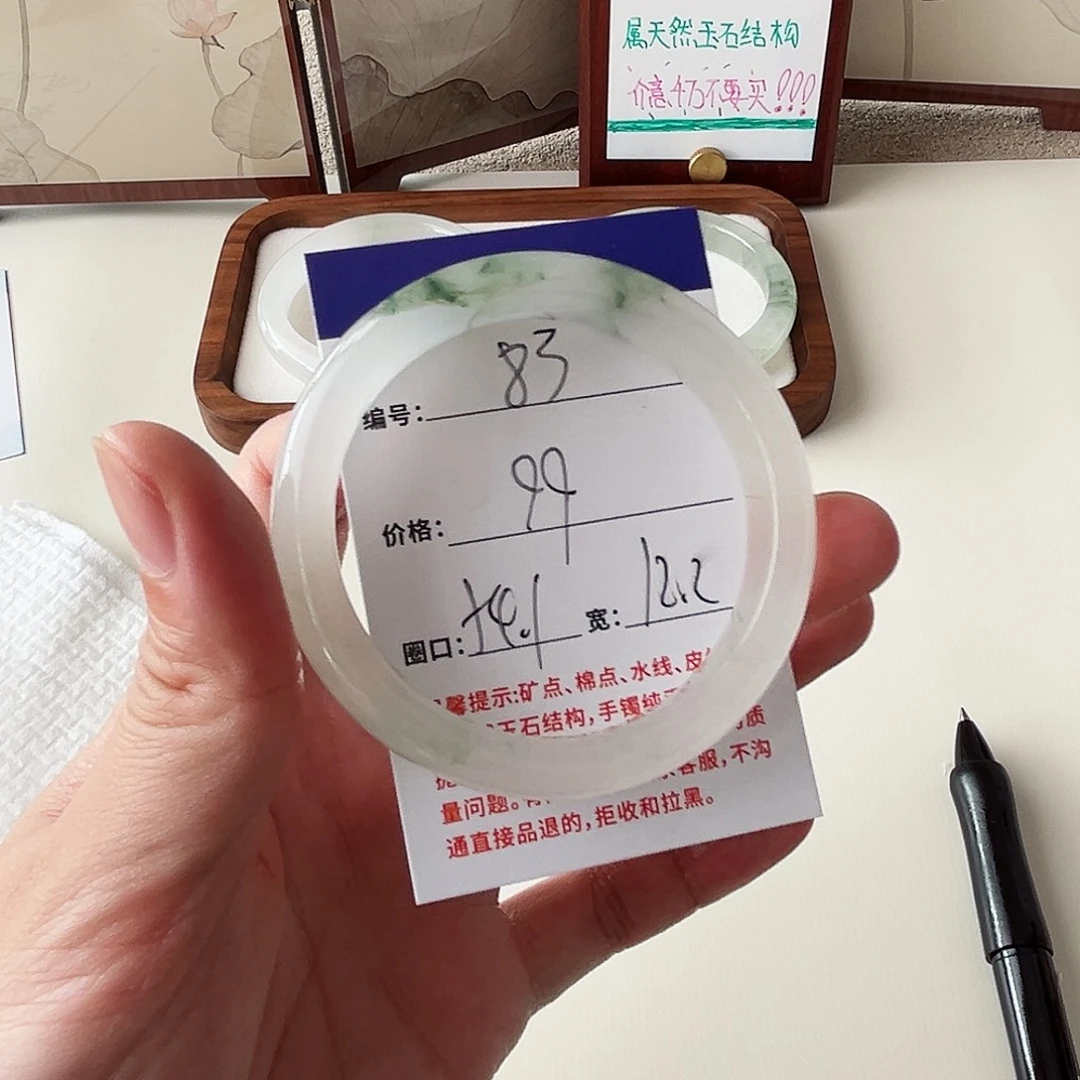 属天然玉石结构
介意,千万不要买!!!
编号: 83
价格: 99
圈口: 54.1 宽: 12.2
馨提示:矿点、棉点、水线、皮
玉石结构,手镯纯
质
客服,不沟
量问题。
通直接品退的,拒收和拉黑。